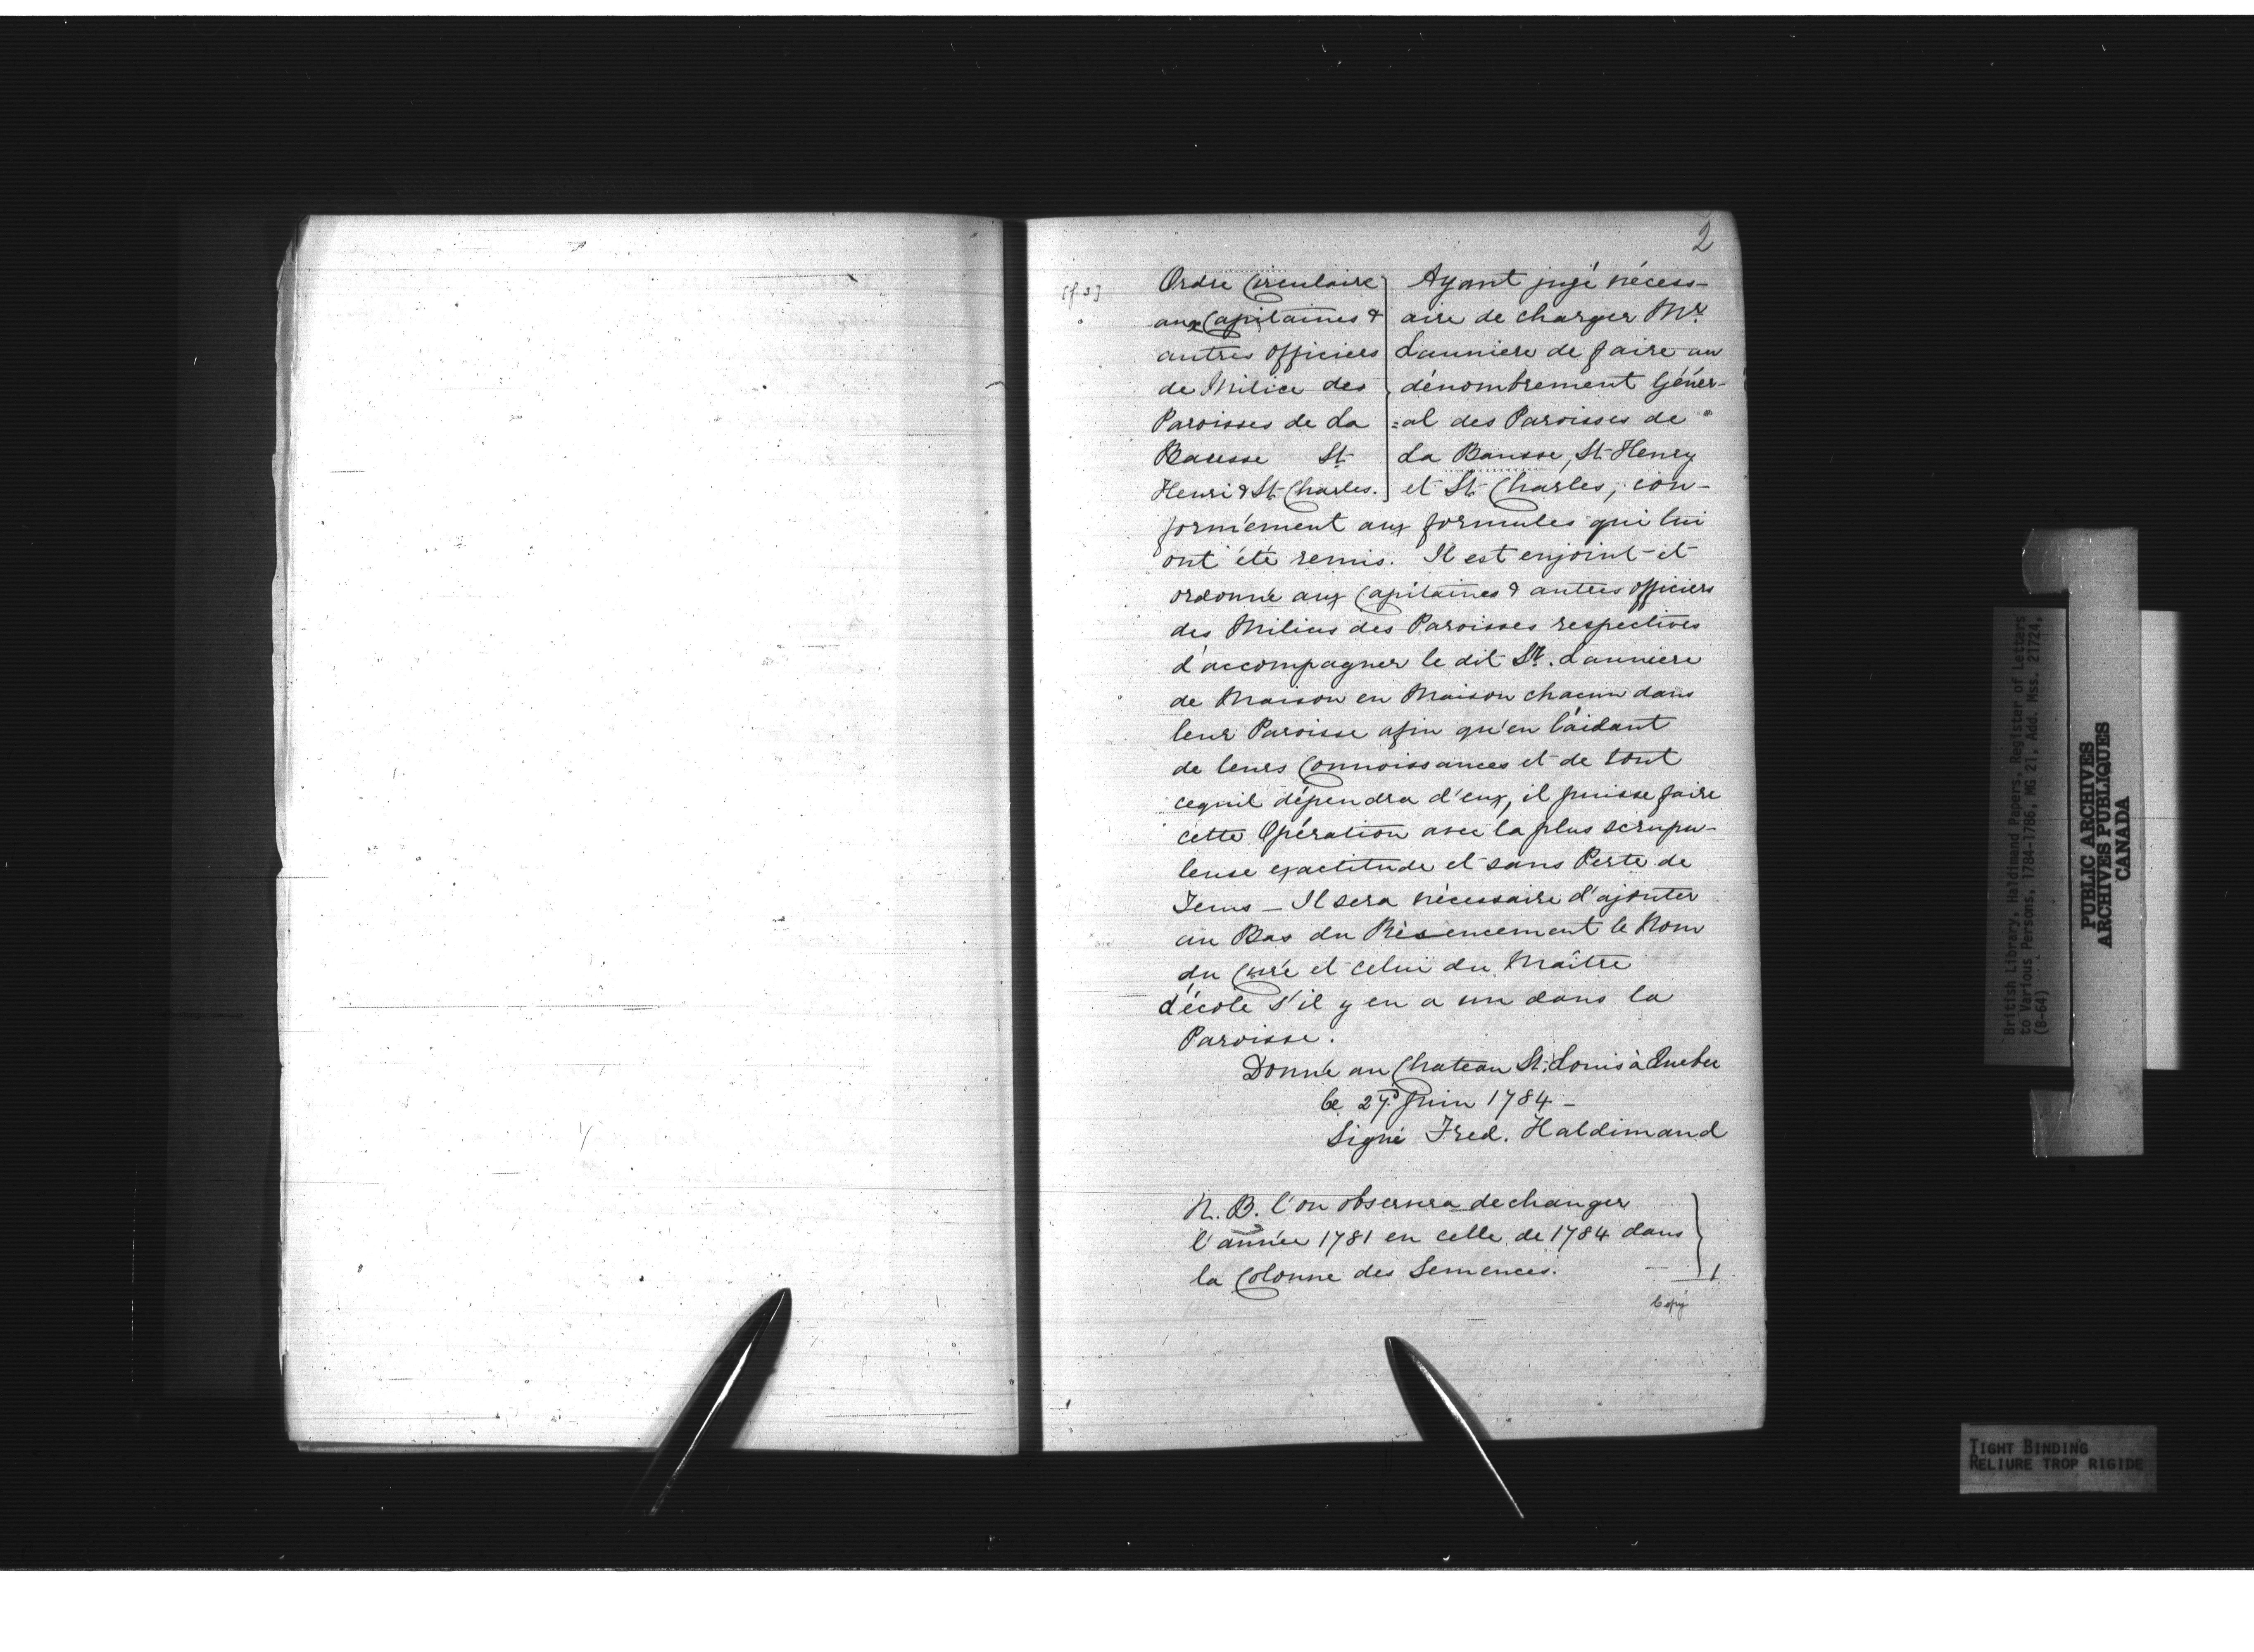 2
[f 3]
Ordre Circulaire
aux Capitaines &
autres officiers
de Milice des
Paroisses de La
Bausse St
Henri & St Charles.
Ayant jugé nécess-
aire de charger Mr.
Launiere de faire au
dénombrement Géner-
=al des Paroisses de
La Bausse, St Henry
et St Charles, con-
formément aux formules qui lui
ont été remis. Il est enjoint et
ordonné aux Capitaines & autres officiers
des Milices des Paroisses respectives
d'accompagner le dit Sr. Launiere
de Maison en Maison chacun dans
leur Paroisse afin qu'en l'aidant
de leurs Connoissances et de tout
cequil dépendra d'eux, il puisse faire
cette Opération avec la plus scrupu-
leuse exactitude et sans Perte de
Tems _ Il sera nécessaire d'ajouter
au Bas du Résencement le Nom
du Curé et celui du Maître
d'école s'il y en a un dans la
Paroisse.
Donné au Chateau St. Louis à Quebec
le 27 Juin 1784 _
Signé Fred. Haldimand
N. B. l'on observera de changer
l'année 1781 en celle de 1784 dans
la Colonne des Semences.
British Library, Haldimand Papers, Register of Letters
to Various Persons, 1784-1786, MG 21, Add. Mss. 21724,
(B-64)
PUBLIC ARCHIVES
ARCHIVES PUBLIQUES
CANADA
TIGHT BINDING
RELIURE TROP RIGIDE